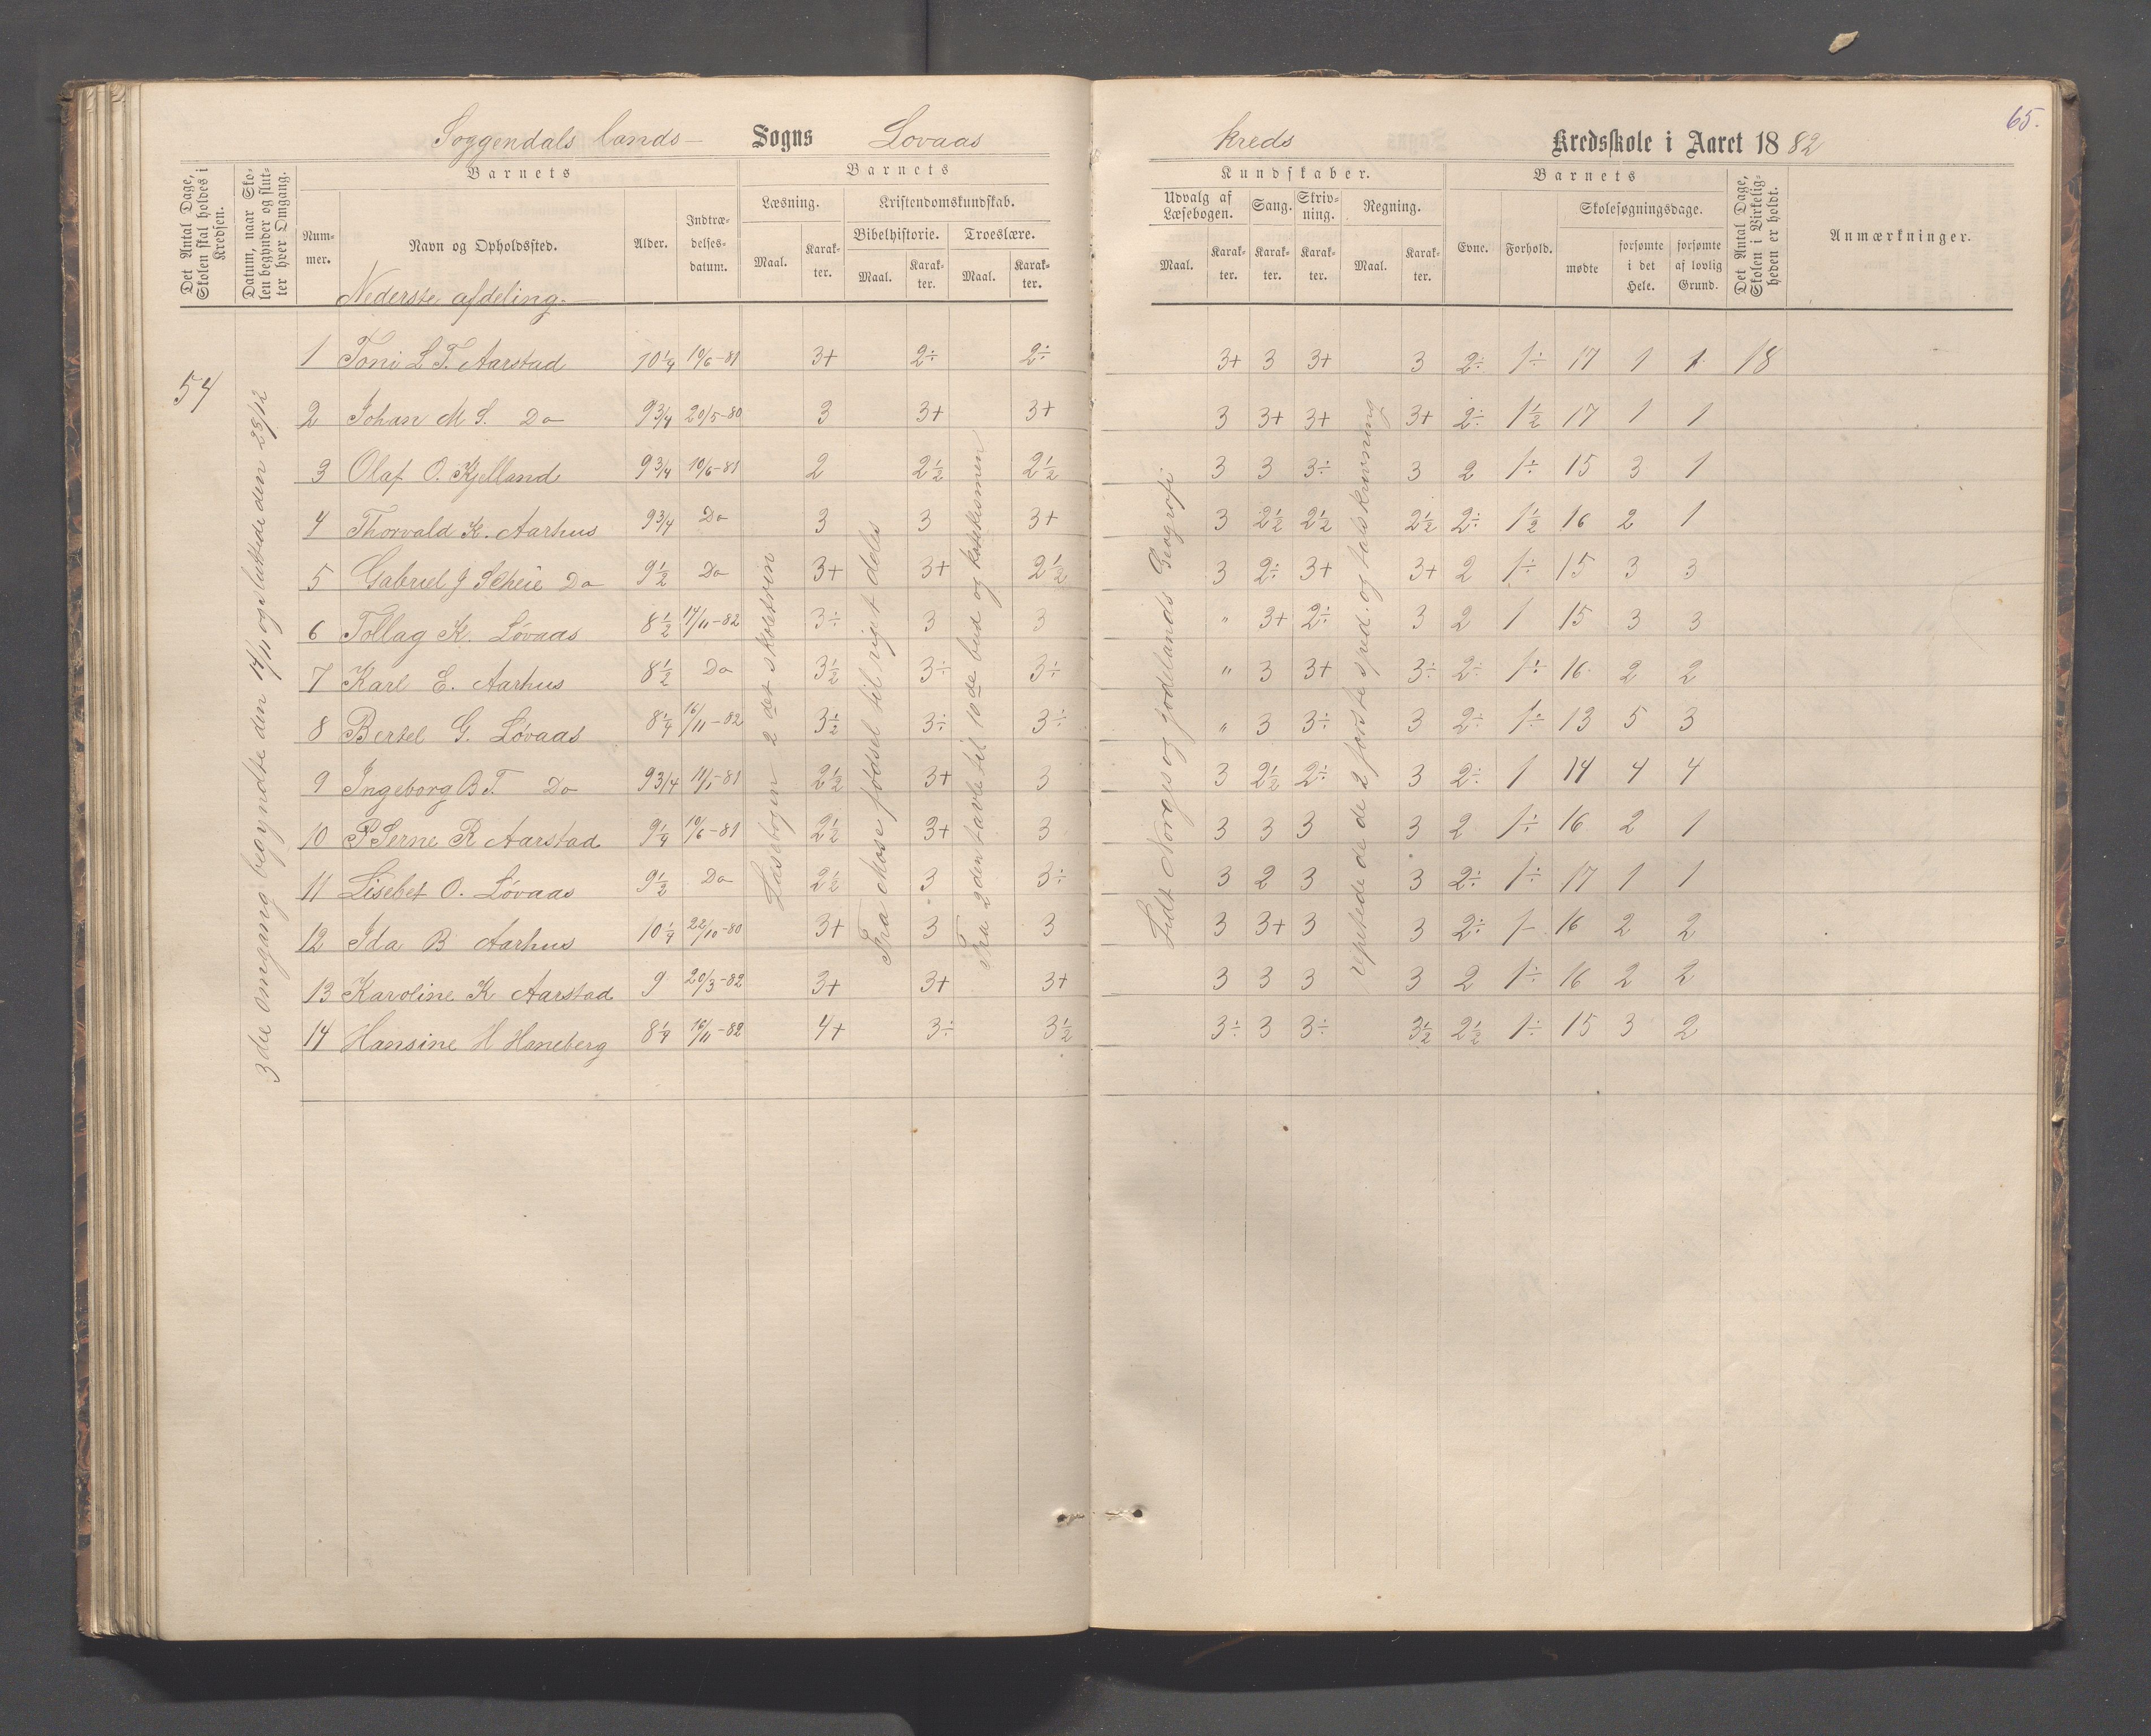 65.
Soggendals lands- Sogns Lovaas kreds Kredsskole i Aaret 1882
Det Antal Dage, Skolen skal holdes i Kredsen.
Datum, naar Skolen begynder og slutter hver Omgang.
Barnets
Nummer.
Navn og Opholdssted.
Alder.
Indtrædelsesdatum.
Barnets
Læsning.
Maal.
Karakter.
Kristendomskundskab.
Bibelhistorie.
Maal.
Karakter.
Troeslære.
Maal.
Karakter.
Kundskaber.
Udvalg af Læsebogen.
Maal.
Karakter.
Sang.
Karakter.
Skrivning.
Karakter.
Regning.
Maal.
Karakter.
Barnets
Evne.
Forhold.
Skolesøgningsdage.
mødte
forsømte i det Hele.
forsømte af lovlig Grund.
Det Antal Dage, Skolen i Virkeligheden er holdt.
Anmærkninger.
Nederste afdeling.
54
3die omgang begyndte den 14/11 og sluttede den 23/12
Læsebogen 2det skoletrin
Fra Mose fødsel til riget deles
Fra 2den tavle til 10de bud og katekismen
Lidt Norges og Jødelands Geografi
repetede de 2 første spec. og talskrivning
1 Toni L T. Aarstad 10 1/4 10/6-81 3+ 2÷ 2÷ 3+ 3 3+ 3 2÷ 1÷ 17 1 1 18
2 Johan M S. Do 9 3/4 20/5-80 3 3+ 3+ 3 3+ 3+ 3+ 2÷ 1 1/2 17 1 1
3 Olaf O. Kjelland 9 3/4 10/6-81 2 2 1/2 2 1/2 3 3 3÷ 3 2 1÷ 15 3 1
4 Thorvald K. Aarhus 9 3/4 Do 3 3 3+ 3 2 1/2 2 1/2 2 1/2 2÷ 1 1/2 16 2 1
5 Gabriel J Scheie Do 9 1/2 Do 3+ 3+ 2 1/2 3 2÷ 3+ 3+ 2 1÷ 15 3 3
6 Tollag K. Løvaas 8 1/2 14/11-82 3÷ 3 3 " 3+ 2÷ 3 2 1 15 3 3
7 Karl E. Aarhus 8 1/2 Do 3 1/2 3÷ 3÷ " 3 3+ 3÷ 2÷ 1÷ 16 2 2
8 Bertel G. Løvaas 8 1/4 16/11-82 3 1/2 3÷ 3÷ " 3 3÷ 3 2÷ 1÷ 13 5 3
9 Ingeborg B T. Do 9 3/4 11/1-81 2 1/2 3+ 3 3 2 1/2 2÷ 3 2÷ 1 14 4 4
10 Serne R Aarstad 9 1/4 10/6-81 2 1/2 3+ 3 3 3 3 3 2 1÷ 16 2 1
11 Lisebet O. Løvaas 9 1/2 Do 2 1/2 3 3÷ 3 2 3 3 2÷ 1÷ 17 1 1
12 Ida B Aarhus 10 1/4 22/10-80 3+ 3 3 3 3+ 3 3 2÷ 1- 16 2 2
13 Karoline K Aarstad 9 20/3-82 3+ 3+ 3+ 3 3 3 3 2 1÷ 16 2 2
14 Hansine H Haneberg 8 1/4 16/11-82 4+ 3÷ 3 1/2 3÷ 3 3÷ 3 1/2 2 1/2 1÷ 15 3 2